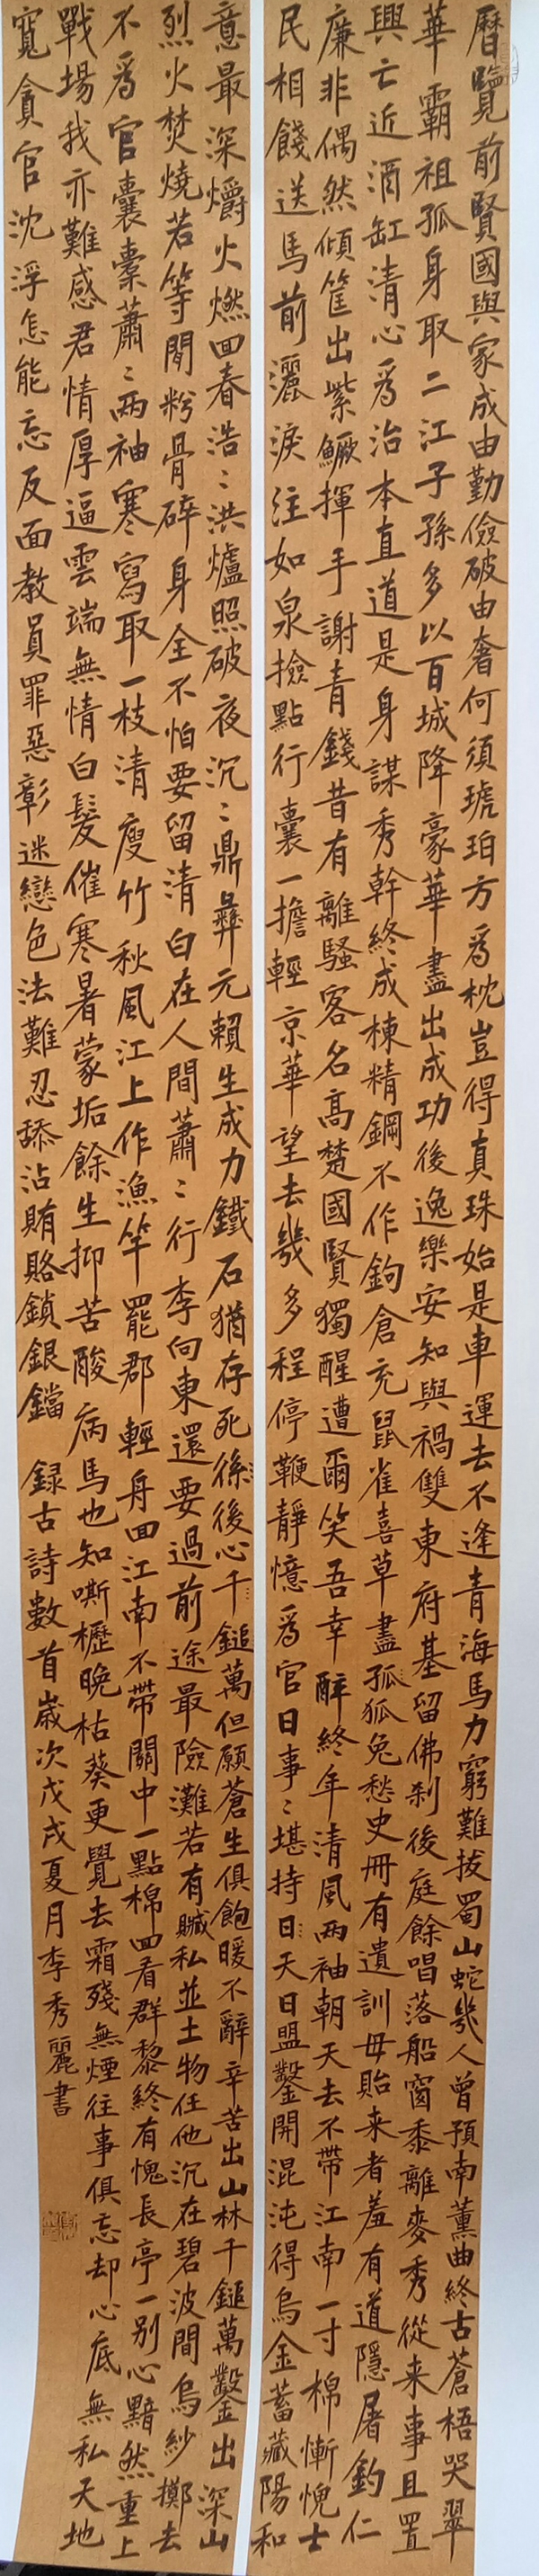 曆覽前賢國與家成由勤儉破由奢何須琥珀方爲枕豈得真珠始是車運去不逢青海馬力窮難拔蜀山蛇幾人曾預南薰曲終古蒼梧哭翠
華霸祖孤身取二江子孫多以百城降豪華盡出成功後逸樂安知與禍雙東府基留佛刹後庭餘唱落船窗黍離麥秀從来事且置
興亡近酒缸清心爲治本直道是身謀秀幹終成棟精鋼不作鉤倉充鼠雀喜草盡孤狐兔愁史冊有遺訓毋貽来者羞有道隱屠釣仁
廉非偶然傾筐出紫鱖揮手謝青錢昔有離騷客名高楚國賢獨醒遭爾笑吾幸醉終年清風兩袖朝天去不帶江南一寸棉慚愧士
民相餞送馬前灑淚注如泉撿點行囊一擔輕京華望去幾多程停鞭靜憶爲官日事〻堪持日天日盟鑿開混沌得烏金蓄藏陽和
意最深爝火燃回春浩〻洪爐照破夜沉〻鼎彝元賴生成力鐵石猶存死後後心千鎚萬但願蒼生俱飽暖不辭辛苦出山林千鎚萬鑿出深山
烈火焚燒若等閒粉骨碎身全不怕要留清白在人間蕭〻行李向東還要過前途最險灘若有贓私並土物任他沉在碧波間烏紗擲去
不爲官囊橐蕭〻兩袖寒寫取一枝清瘦竹秋風江上作漁竿罷郡輕舟回江南不帶關中一點棉回看群黎終有愧長亭一别心黯然重上
戰場我亦難感君情厚逼雲端無情白髮催寒暑蒙垢餘生抑苦酸病馬也知嘶櫪晚枯葵更覺去霜殘無煙往事俱忘却心底無私天地
寬貪官沈浮怎能忘反面教員罪惡彰迷戀色法難忍舔沾賄賂鎖銀鐺 録古詩數首歲次戊戌夏月李秀麗書